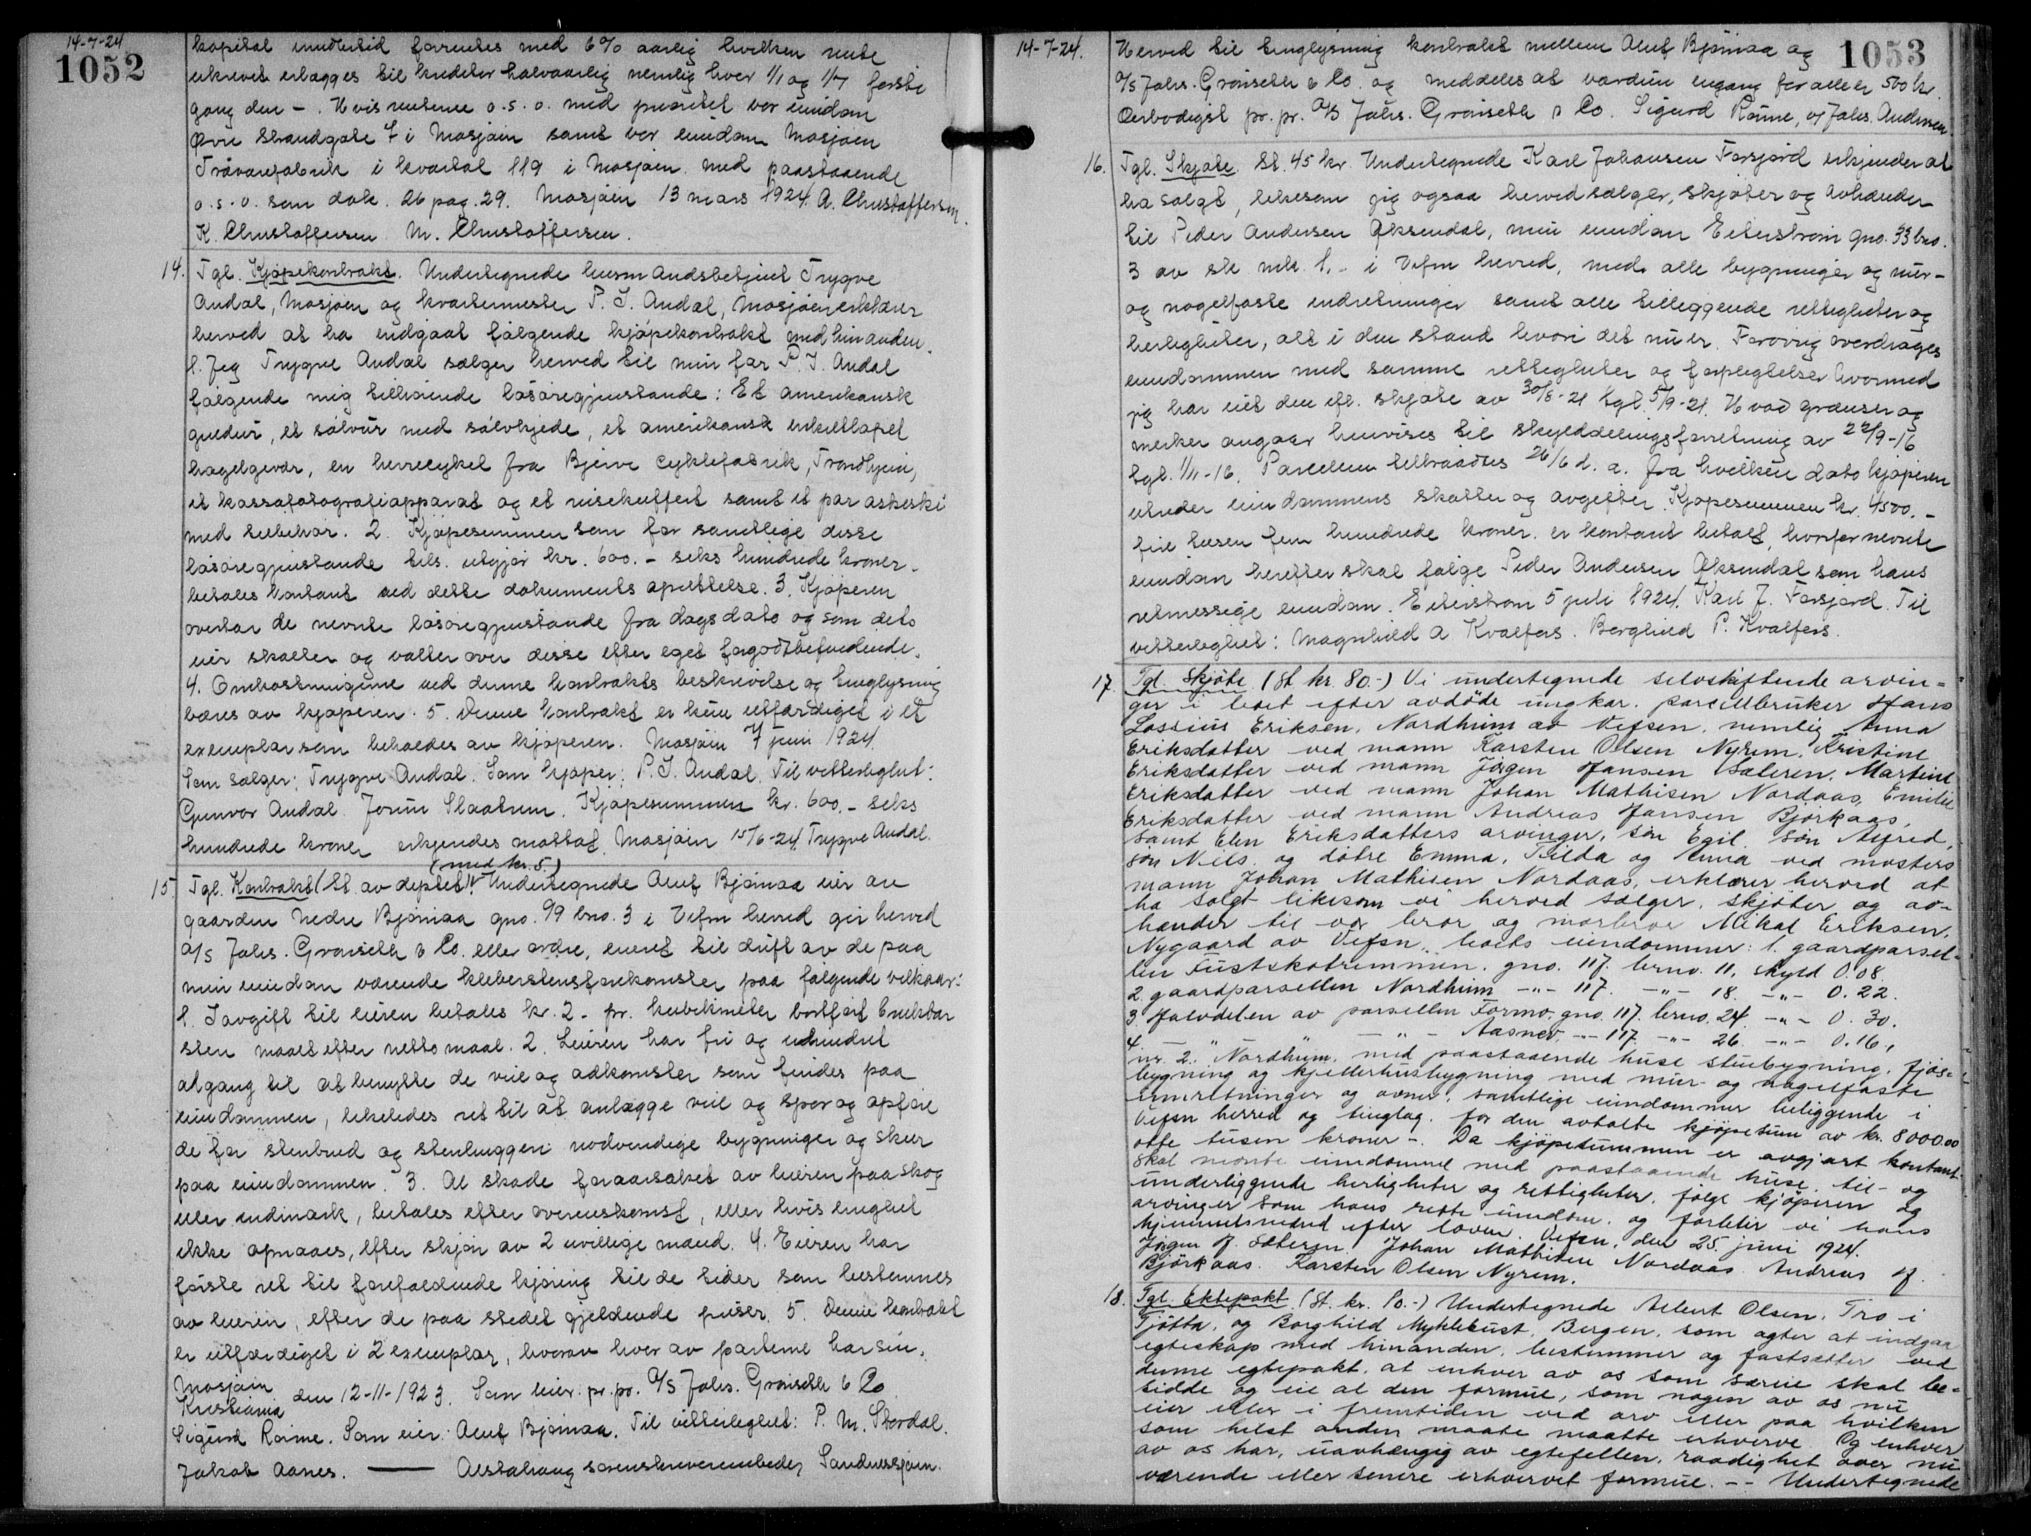 14-7-24
1052
kapital imidlertid forrentes med 6% aarlig hvilken rente
ukrevet erlægges til kreditor halvaarlig nemlig hver 1/1 og 1/7 første
gang den -. Hvis renterne o.s.v. med prioritet vor eiendom
Øvre Strandgate 7 i Mosjøen samt vor eiendom Mosjøen
Trævarefabrik i kvartal 119 i Mosjøen med paastaaende
o.s.v. som dok. 26 pag. 29. Mosjøen 13 mars 1924. A. Christoffersen
K. Christoffersen M. Christoffersen.
14. Tgl. Kjøpekontrakt. Undertegnede lensmandsbetjent Trygve
Andal, Mosjøen og kvartermester P. I. Andal, Mosjøen erklærer
herved at ha indgaat følgende kjøpekontrakt med hinanden.
1. Jeg Trygve Andal sælger herved til min far P. I. Andal
følgende mig tilhørende løsøregjenstande: Et amerikansk
guldur, et sølvur med sølvkjede, et amerikansk enkeltløpet
haglgevær, en herrecykel fra Bjerve cyklefabrik, Trondhjem,
et kassafotografiapparat og et reisekuffert samt et par askeski
med tilbehør. 2. Kjøpesummen som for samtlige disse
løsøregjenstande tils. utgjør kr. 600.- seks hundrede kroner-
betales kontant ved dette dokuments oprettelse. 3. Kjøperen
overtar de nevnte løsøregjenstande fra dags dato og som dets
eier skalter og valter over disse efter eget forgodtbefindende.
4. Omkostningerne ved denne kontrakts beskrivelse og tinglysning
bæres av kjøperen. 5. Denne kontrakt er kun utfærdiget i et
exemplar som beholdes av kjøperen. Mosjøen 7 juni 1924
Som sælger: Trygve Andal. Som kjøper: P. I. Andal. Til vitterlighet:
Gunvor Andal. Jorun Slaatrem. Kjøpesummen kr. 600.- seks
hundrede kroner erkjendes mottat. Mosjøen 15/6-24. Trygve Andal.
(med kr. 5.)
15. Tgl. Kontrakt (St. av deptet!! Undertegnede Oluf Bjørnaa eier av
gaarden Nedre Bjørnaa gno. 99 bno. 3 i Vefsn herred gir herved
A/S Johs. Grønseth & Co. eller ordre, eneret til drift av de paa
min eiendom værende kleberstensforekomster paa følgende vilkaar:
1. I avgift til eieren betales kr. 2.- pr. kubikmeter bortført brukbar
sten maalt efter netto maal. 2. Leieren har fri og uhindret
adgang til at benytte de veie og adkomster som findes paa
eiendommen, likeledes ret til at anlægge veie og spor og opføre
de for stenbrud og stenhuggeri nødvendige bygninger og skur
paa eiendommen. 3. Al skade foraarsaket av leieren paa skog
eller indmark, betales efter overenskomst, eller hvis enighet
ikke opnaaes, efter skjøn av 2 uvillige mænd. 4. Eieren har
første ret til forefaldende kjøring til de tider som bestemmes
av leieren, efter de paa stedet gjeldende priser. 5. Denne kontrakt
er utfærdiget i 2 exemplar, hvorav hver av parterne har sin.
Mosjøen
Kristiania den 12-11-1923. Som leier: pr. pr. A/S Johs. Grønseth & Co
Sigurd Rønne. Som eier: Oluf Bjørnaa. Til vitterlighet: P. M. Stordal.
Jakob Aanes. — Alstahaug sorenskriverembede, Sandnessjøen.
14-7-24.
1053
Herved til tinglysning kontrakt mellem Oluf Bjørnaa og
A/S Johs. Grønseth & Co. og meddeles at værdien engang for alle er 500 kr.
Ærbødigst pr. pr. A/S Johs. Grønseth & Co. Sigurd Rønne, e/ Johs. Andersen
16. Tgl. Skjøte St. 45 kr. Undertegnede Karl Johansen Forsjord erkjender at
ha solgt, likesom jeg ogsaa herved sælger, skjøter og avhænder
til Peder Andersen Øksendal, min eiendom Eiterstrøm gno. 33 bno.
3 av sk mk. 1.- i Vefsn herred, med alle bygninger og mur-
og nagelfaste indretninger samt alle tilleggende rettigheter og
herligheter, alt i den stand hvori det nu er. Forøvrig overdrages
eiendommen med samme rettigheter og forpligtelser hvormed
jeg har eiet den efl. skjøte av 30/8-21 tgl. 5/9-21. Hvad grænser og
merker angaar henvises til skylddelingsforretning av 22/9-16
tgl. 1/11-16. Parcellen tiltraadtes 26/6 d. a. fra hvilken dato kjøperen
utreder eiendommens skatter og avgifter. Kjøpesummen kr. 4500.-
fire tusen fem hundrede kroner er kontant betalt, hvorfor nevnte
eiendom herefter skal følge Peder Andersen Øksendal som hans
retmessige eiendom. Eiterstrøm 5 juli 1924. Karl J. Forsjord. Til
vitterlighet: Magnhild A Kvalfors. Borghild P. Kvalfors.
17. Tgl. Skjøte (St. kr. 80.-) Vi undertegnede selvskiftende arvin-
ger i boet efter avdøde ungkar, parcellbruker Hans
Lossius Eriksen, Nordhum av Vefsen, nemlig Anna
Eriksdatter ved mann Karsten Olsen Nyrem, Kristine
Eriksdatter ved mann Jørgen Hansen Sæteren, Martine
Eriksdatter ved mann Johan Mathisen Nordaas, Emilie
Eriksdatter ved mann Andreas Hansen Bjørkaas,
samt Elen Eriksdatters arvinger, søn Egil, søn Alfred,
søn Nils og døtre Emma, Tilda og Anna ved mosters
mann Johan Mathisen Nordaas, erklærer herved at
ha solgt likesom vi herved sælger, skjøter og av-
hænder til vor bror og morbror Mikal Eriksen,
Nygaard av Vefsn, boets eiendommer: 1. gaardparsel-
len Fustskotremmen, gno. 117. brno. 11, skyld 0.08
2. gaardparsellen Nordhum -"- 117. -"- 18. -"- 0.22.
3. Halvdelen av parsellen Formo, gno. 117. brno. 24 -"- 0.30.
4. — " — " - Aasnev, -"- 117. -"- 26. -"- 0.16,
nr. 2. Nordhum, med paastaaende huse stuebygning, fjøs-
bygning og kjellerhusbygning med mur- og nagelfaste
innretninger og ovner, samtlige eiendommer beliggende i
Vefsn herred og tinglag, for den avtalte kjøpesum av kr. 8000.00
otte tusen kroner -. Da kjøpesummen er avgjort kontant
skal nevnte eiendomme med paastaaende huse, til- og
underliggende herligheter og rettigheter, følge kjøperen og
arvinger som hans rette eiendom, og forblir vi hans
hjemmelsmænd efter loven. Vefsn, den 25. juni 1924.
Jørgen H. Sæteren. Johan Mathisen Nordaas. Andreas H.
Bjørkaas. Karsten Olsen Nyrem.
18. Tgl. Ektepakt (St. kr. 10.-) Undertegnede Albert Olsen, Tro i
Tjøtta, og Borghild Myklebust, Bergen, som agter at indgaa
egteskap med hinanden, bestemmer og fastsætter ved
denne egtepakt, at enhver av os som særeie skal be-
sidde og eie al den formue, som nogen av os nu
eier eller i fremtiden ved arv eller paa hvilken
som helst anden maate maatte erhverve. Og enhver
av os har, uavhængig av egtefellen, raadighet over nu-
værende eller senere erhvervet formue. -- Undertegnede